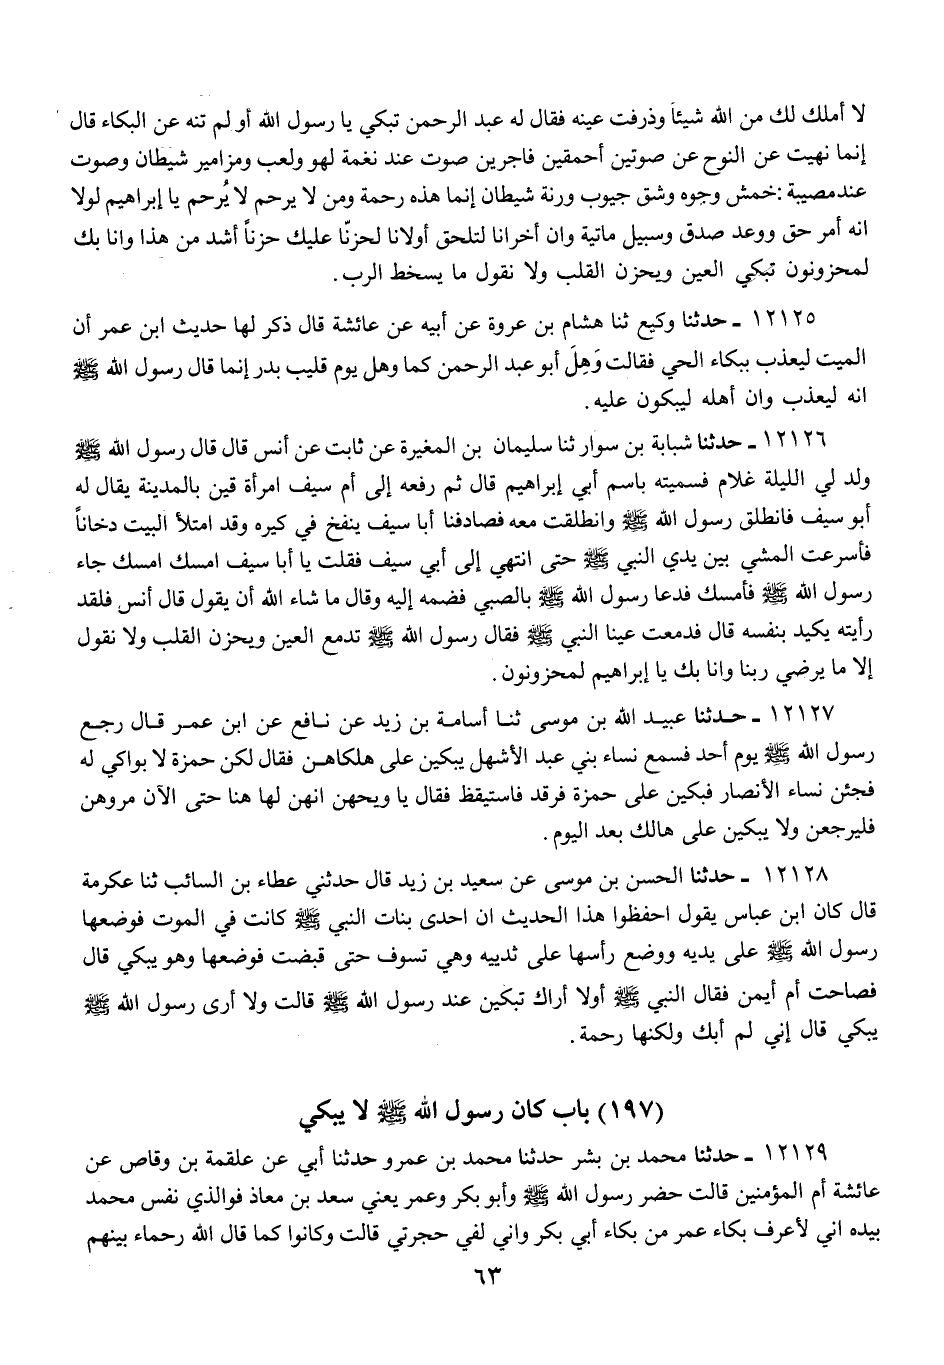 لا أملك لك من الله شيئاً وذرفت عينه فقال له عبد الرحمن تبكي يا رسول الله أو لم تنه عن البكاء قال
إنما نهيت عن النوح عن صوتين أحمقين فاجرين صوت عند نغمة لهو ولعب ومزامير شيطان وصوت
عند مصيبة : خمش وجوه وشق جيوب ورنة شيطان إنما هذه رحمة ومن لا يرحم لا يُرحم يا إبراهيم لولا
انه أمر حق ووعد صدق وسبيل ماتية وان أخرانا لتلحق أولانا لحزنّا عليك حزناً أشد من هذا وانا بك
لمحزونون تبكي العين ويحزن القلب ولا نقول ما يسخط الرب .
١٢١٢٥ ـ حدثنا وكيع ثنا هشام بن عروة عن أبيه عن عائشة قال ذكر لها حديث ابن عمر أن
الميت ليعذب ببكاء الحي فقالت وَهِلَ أبو عبد الرحمن كما وهل يوم قليب بدر إنما قال رسول الله ﷺ
انه ليعذب وان أهله ليبكون عليه .
١٢١٢٦ ـ حدثنا شبابة بن سوار ثنا سليمان بن المغيرة عن ثابت عن أنس قال قال رسول الله ﷺ
ولد لي الليلة غلام فسميته باسم أبي إبراهيم قال ثم رفعه إلى أم سيف امرأة قين بالمدينة يقال له
أبو سيف فانطلق رسول الله ﷺ وانطلقت معه فصادفنا أبا سيف ينفخ في كيره وقد امتلأ البيت دخاناً
فأسرعت المشي بين يدي النبي ﷺ حتى انتهي إلى أبي سيف فقلت يا أبا سيف امسك امسك جاء
رسول الله ﷺ فأمسك فدعا رسول الله ﷺ بالصبي فضمه إليه وقال ما شاء الله أن يقول قال أنس فلقد
رأيته يكيد بنفسه قال فدمعت عينا النبي ﷺ فقال رسول الله ﷺ تدمع العين ويحزن القلب ولا نقول
إلا ما يرضي ربنا وانا بك يا إبراهيم لمحزونون .
١٢١٢٧ ـ حدثنا عبيد الله بن موسى ثنا أسامة بن زيد عن نافع عن ابن عمر قال رجع
رسول الله ﷺ يوم أحد فسمع نساء بني عبد الأشهل يبكين على هلكاهن فقال لكن حمزة لا بواكي له
فجئن نساء الأنصار فبكين على حمزة فرقد فاستيقظ فقال يا ويحهن انهن لها هنا حتى الآن مروهن
فليرجعن ولا يبكين على هالك بعد اليوم .
١٢١٢٨ ـ حدثنا الحسن بن موسى عن سعيد بن زيد قال حدثني عطاء بن السائب ثنا عكرمة
قال كان ابن عباس يقول احفظوا هذا الحديث ان احدى بنات النبي ﷺ كانت في الموت فوضعها
رسول الله ﷺ على يديه ووضع رأسها على ثدييه وهي تسوف حتى قبضت فوضعها وهو يبكي قال
فصاحت أم أيمن فقال النبي ﷺ أولا أراك تبكين عند رسول الله ﷺ قالت ولا أرى رسول الله ﷺ
يبكي قال إني لم أبك ولكنها رحمة .
(١٩٧) باب كان رسول الله ﷺ لا يبكي
١٢١٢٩ ـ حدثنا محمد بن بشر حدثنا محمد بن عمرو حدثنا أبي عن علقمة بن وقاص عن
عائشة أم المؤمنين قالت حضر رسول الله ﷺ وأبو بكر وعمر يعني سعد بن معاذ فوالذي نفس محمد
بيده اني لأعرف بكاء عمر من بكاء أبي بكر واني لفي حجرتي قالت وكانوا كما قال الله رحماء بينهم
٦٣